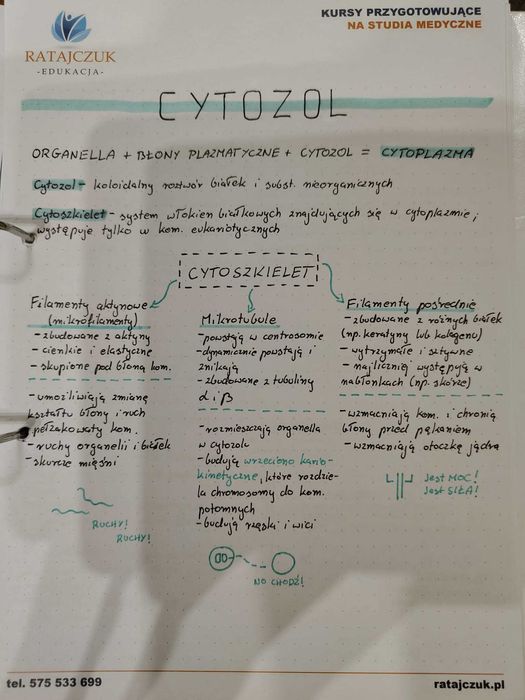 RATAJCZUK
-EDUKACJA-
KURSY PRZYGOTOWUJĄCE
NA STUDIA MEDYCZNE
CYTOZOL
ORGANELLA + BŁONY PLAZMATYCZNE + CYTOZOL = CYTOPLAZMA
Cytozol - koloidalny roztwór białek i subst. nieorganicznych
Cytoszkielet - system włókien białkowych znajdujących się w cytoplazmie;
występuje tylko w kom. eukariotycznych
CYTOSZKIELET
Filamenty aktynowe
(mikrofilamenty)
- zbudowane z aktyny
- cienkie i elastyczne
- skupione pod błoną kom.
- umożliwiają zmianę
kształtu błony i ruch
pełzakowaty kom.
- ruchy organelli i białek
- skurcze mięśni
RUCHY!
RUCHY!
Mikrotubule
- powstają w centrosomie
- dynamicznie powstają i
znikają
- zbudowane z tubuliny
α i β
- rozmieszczają organella
w cytozolu
- budują wrzeciono kario-
kinetyczne, które rozdzie-
la chromosomy do kom.
potomnych
- budują rzęski i wici
NO CHODŹ!
Filamenty pośrednie
- zbudowane z różnych białek
(np. keratyny lub kolagenu)
- wytrzymałe i sztywne
- najliczniej występują w
nabłonkach (np. skórze)
- wzmacniają kom. i chronią
błony przed pękaniem
- wzmacniają otoczkę jądra
Jest MOC!
Jest SIŁA!
tel. 575 533 699
ratajczuk.pl